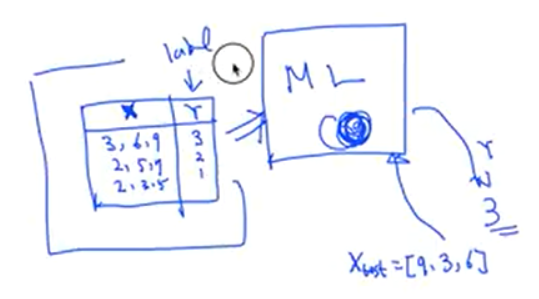 label
X Y
3, 6, 9 3
2, 5, 9 2
2, 3, 5 1
ML
Y
3
Xtest = [9, 3, 6]